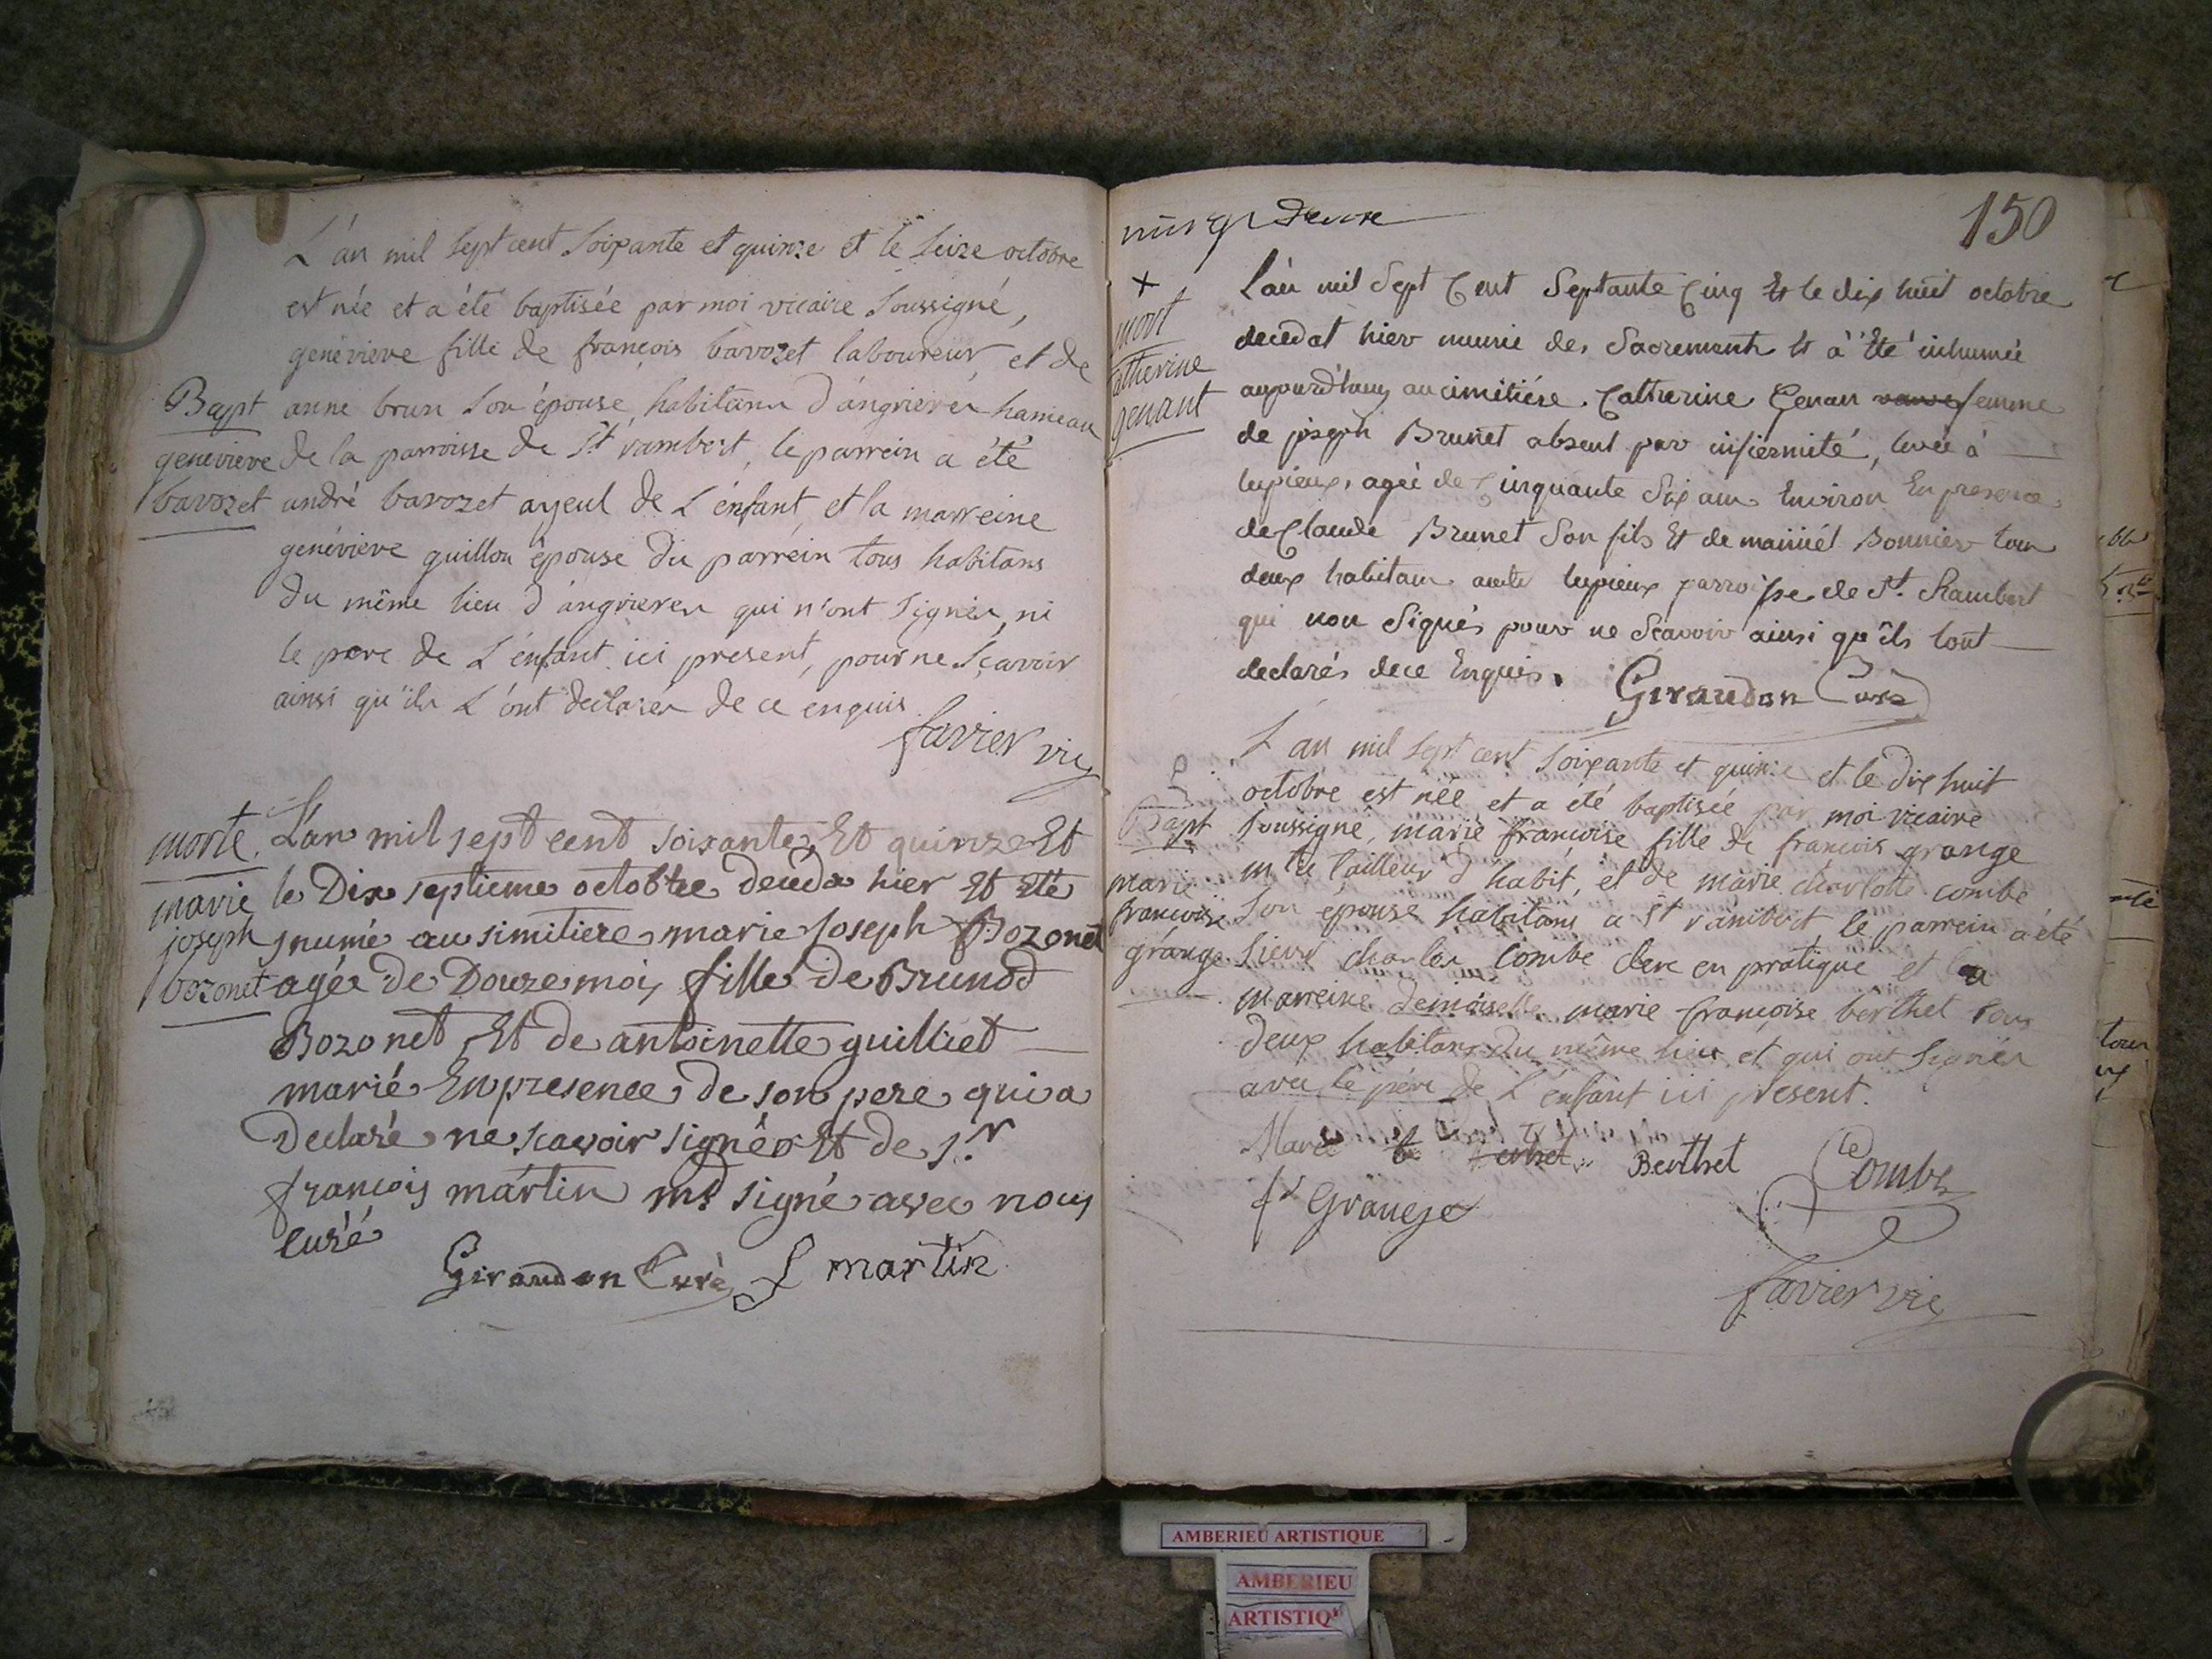 L'an mil sept cent soixante et quinze et le seize octobre
est née et a été baptisée par moi vicaire soussigné,
genévieve fille de françois bavozet laboureur, et de
Bapt
genevieve
bavozet
anne brun son épouse, habitans d'angrieres hameau
de la parroisse de St rambert, le parrein a été
andré bavozet ayeul de L'énfant, et la marreine
genévieve guillon épouse du parrein tous habitans
du même lieu d'angrieres qui n'ont signés, ni
le pere de L'énfant ici present, pour ne sçavoir
ainsi qu'ils L'ont declarés de ce enquis
favier vic
morte
marie
joseph
bozonet
L'an mil sept cent soixante Et quinze Et
le Dix septieme octobre deceda hier Et Eté
jnumé au simitiere marie joseph Bozonet
agée de Douze mois fille de Brunod
Bozonet Et de antoinette guilliet
marié En presence de son pere qui a
Declaré ne scavoir signér Et de sr
françois martin md signé avec nous
curé
Giraudon Curé f martin
150
+
mort
catherine
genant
L'an mil Sept Cent Septante Cinq Et le dix huit octobre
decedat hier munie des Sacrements Et à Eté inhumée
aujourd'huy au cimitiére. Catherine Genan femme
de joseph Brunet absent par infiermité, levée à
lupieux, agée de Cinquante Six ans Environ En presence
de Claude Brunet Son fils Et de Bonnier tous
deux habitans lupieux parroisse de St. Rambert
qui non Signés pour ne Scavoir ainsi qu'ils lont
declarés de ce Enquis. Giraudon Curé
Bapt
marie
francoise
grange
L'an mil sept cent soixante et quinze et le dix huit
octobre est née et a été baptisée par moi vicaire
soussigné, marie françoise fille de francois grange
mtre tailleur d'habit, et de marie charlotte combe
son épouse habitans a St rambert, le parrein a été
sieur charles combe clerc en pratique et la
marreine demoiselle marie françoise berthet tous
deux habitans du même lieu et qui ont signés
avec le pére de L'enfant ici present.
Marie Berthet Combe
fs Grange
favier vic
AMBERIEU ARTISTIQUE
AMBERIEU
ARTISTIQ